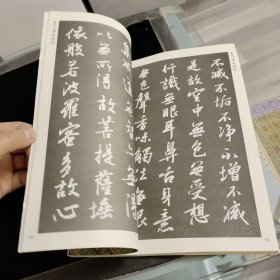 不滅不垢不淨不增不減
是故空中無色無受想
行識無眼耳鼻舌身意
無色聲香味觸法無眼
以無所得故菩提薩埵
依般若波羅蜜多故心